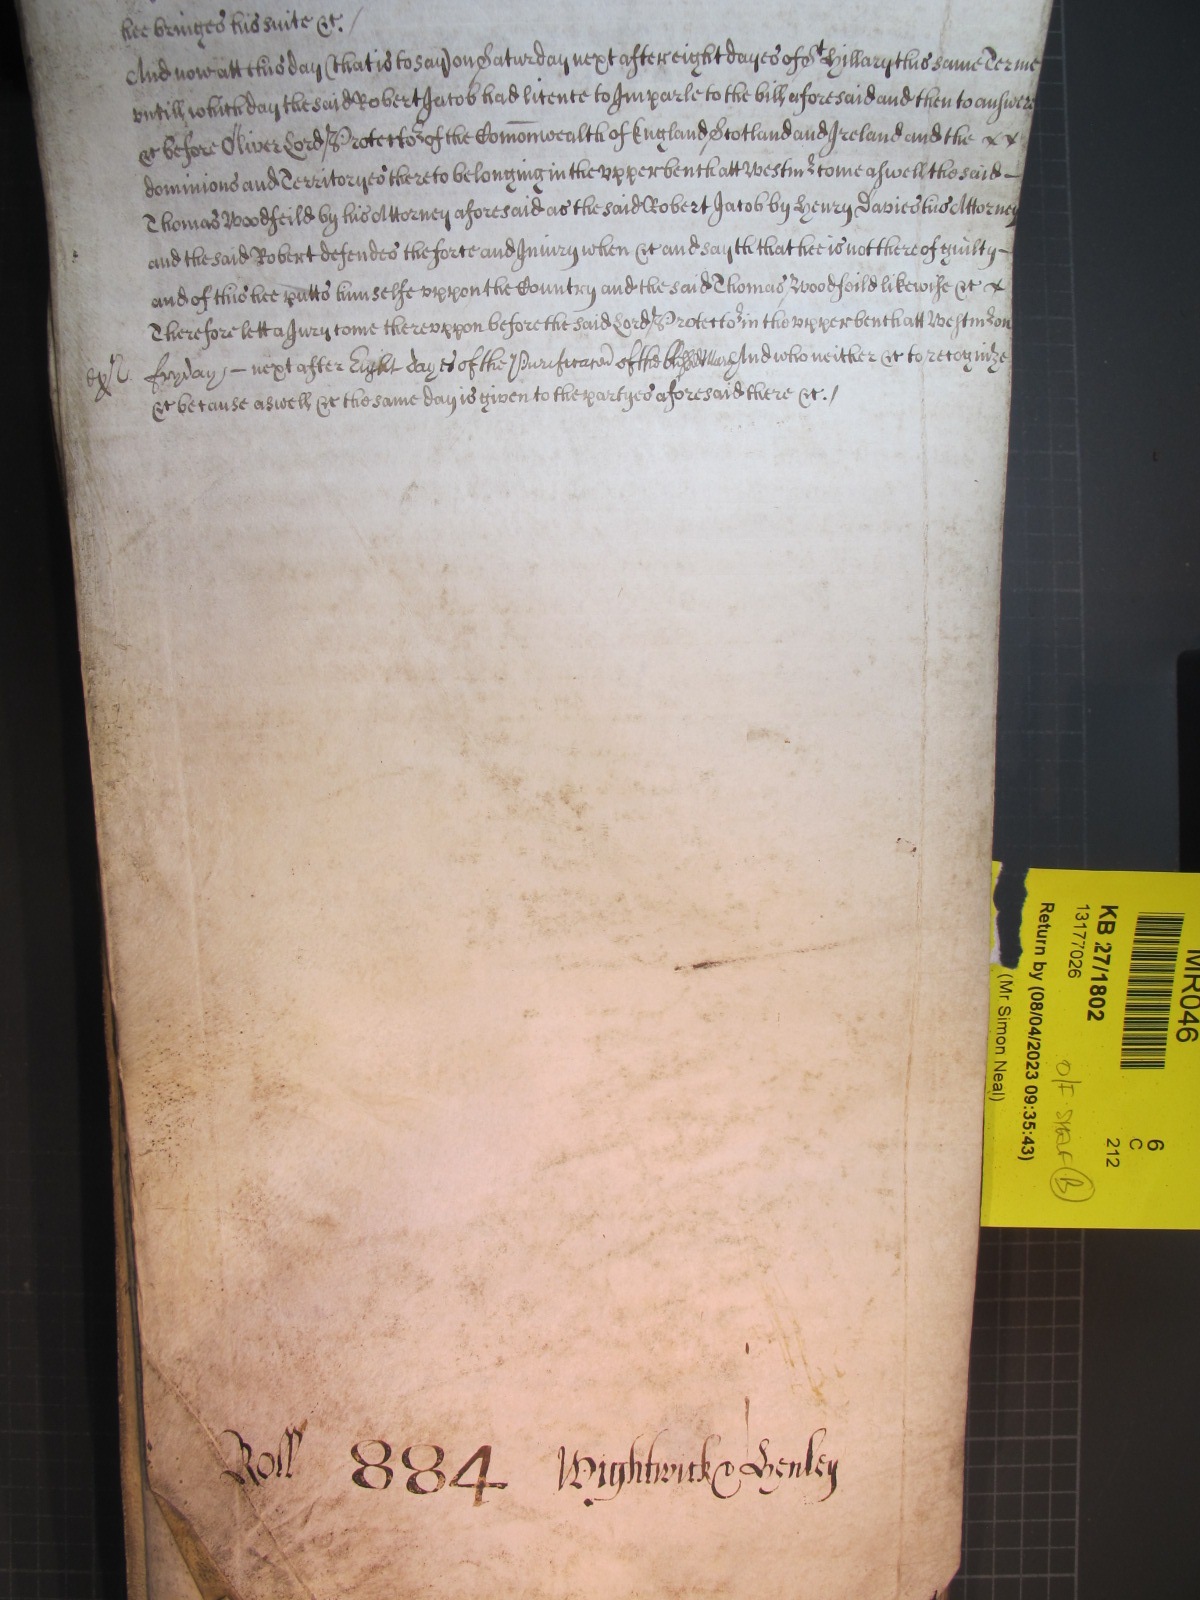 hee bringes his suite &c./
And now att this day (that is to say) on Saturday next after eight dayes of St Hillary this same Terme
vntill which day the said Robert Jacob had licence to Imparle to the bill aforesaid and then to answere
&c before Oliver Lord Protector of the Comonwealth of England Scotland and Ireland and the x x
dominions and Territoryes thereto belonging in the vpper bench att Westmr come aswell the said —
Thomas Woodfeild by his Attorney aforesaid as the said Robert Jacob by Henry Davies his Attorney
and the said Robert defendes the force and Iniury when &c and sayth that hee is not thereof guilty —
and of this hee putts himselfe vppon the Country and the said Thomas Woodfeild likewise &c x
Therefore lett a Jury come therevppon before the said Lord Protector in the vpper bench att Westmr on
fryday — next after Eight dayes of the Purificacon of the blessed Mary And who neither &c to recognize
&c because aswell &c the same day is given to the partyes aforesaid there &c./
Roll 884 Wightwick & Henley
MR046
KB 27/1802
13177026
Return by (08/04/2023 09:35:43)
(Mr Simon Neal)
6
C
212